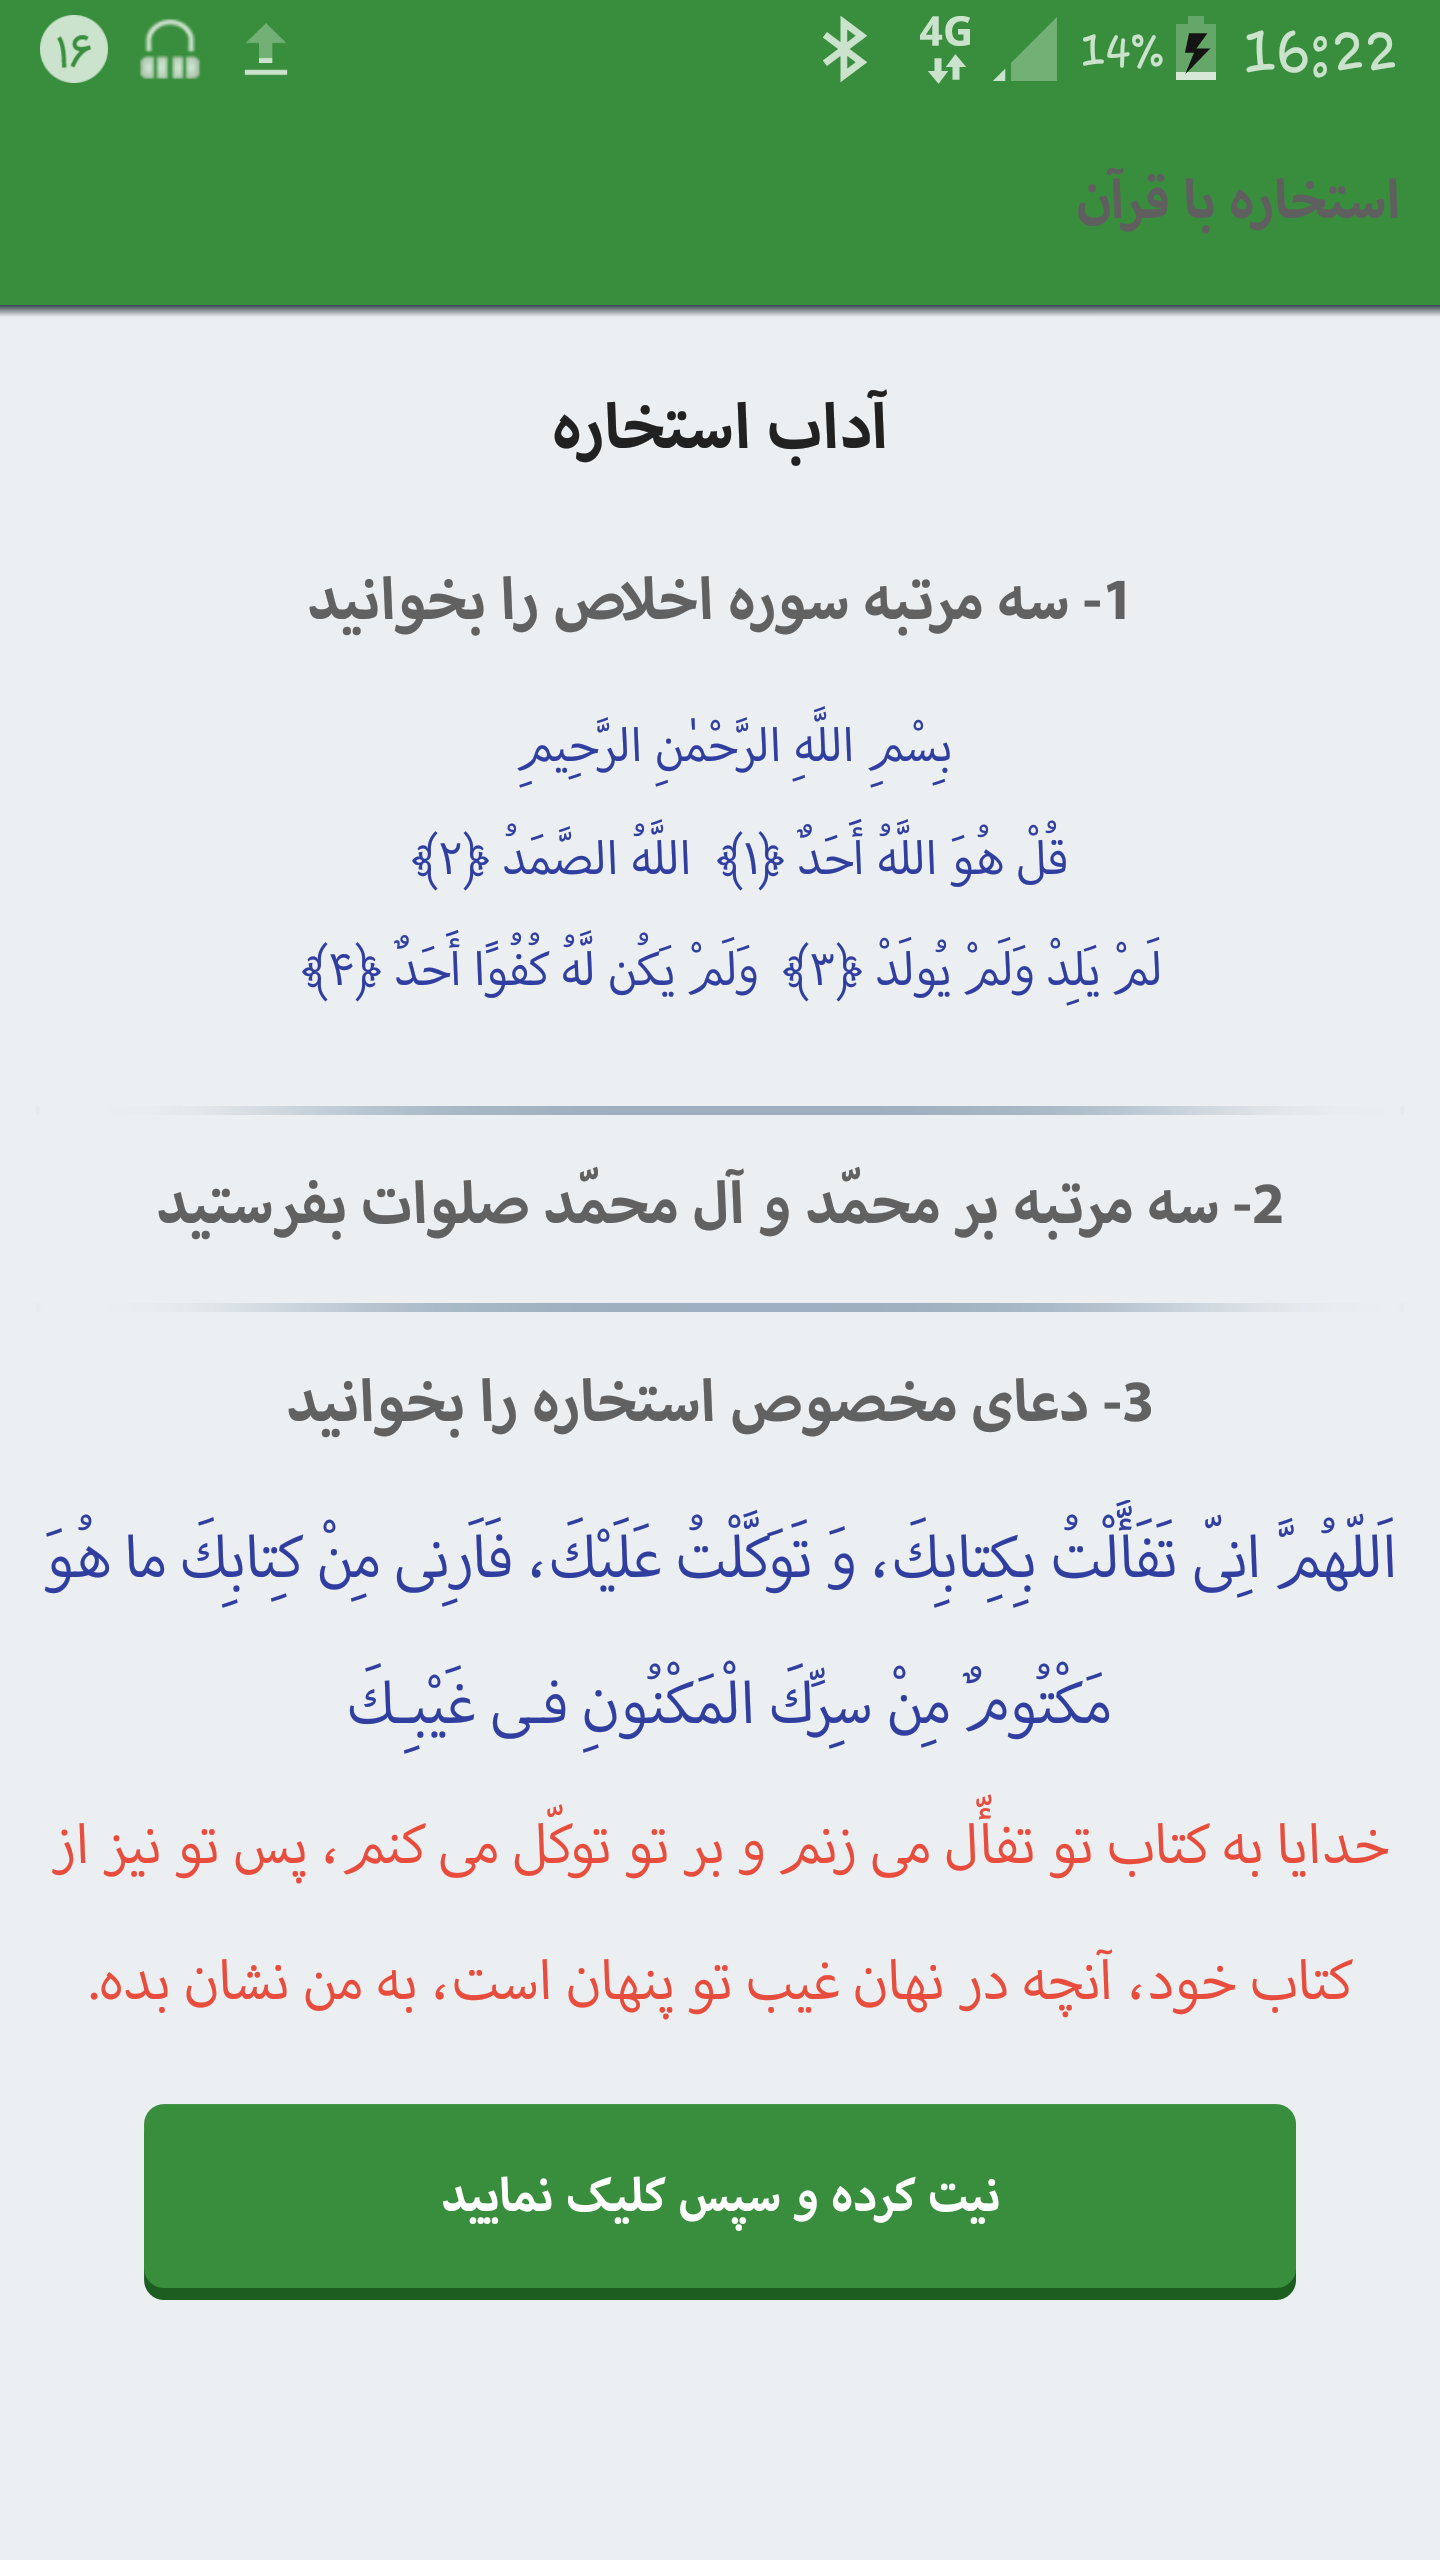 ۱۶
4G
14%
16:22
استخاره با قرآن
آداب استخاره
1- سه مرتبه سوره اخلاص را بخوانید
بِسْمِ اللَّهِ الرَّحْمَٰنِ الرَّحِیمِ
قُلْ هُوَ اللَّهُ أَحَدٌ ﴿۱﴾ اللَّهُ الصَّمَدُ ﴿۲﴾
لَمْ یَلِدْ وَلَمْ یُولَدْ ﴿۳﴾ وَلَمْ یَكُن لَّهُ كُفُوًا أَحَدٌ ﴿۴﴾
2- سه مرتبه بر محمّد و آل محمّد صلوات بفرستید
3- دعای مخصوص استخاره را بخوانید
اَللّهُمَّ اِنِیّ تَفَأَّلْتُ بِكِتابِكَ، وَ تَوَكَّلْتُ عَلَیْكَ، فَاَرِنِی مِنْ كِتابِكَ ما هُوَ
مَكْتُومٌ مِنْ سِرِّكَ الْمَكْنُونِ فـی غَیْبِـكَ
خدایا به كتاب تو تفأّل می زنم و بر تو توكّل می كنم، پس تو نیز از
كتاب خود، آنچه در نهان غیب تو پنهان است، به من نشان بده.
نیت کرده و سپس کلیک نمایید